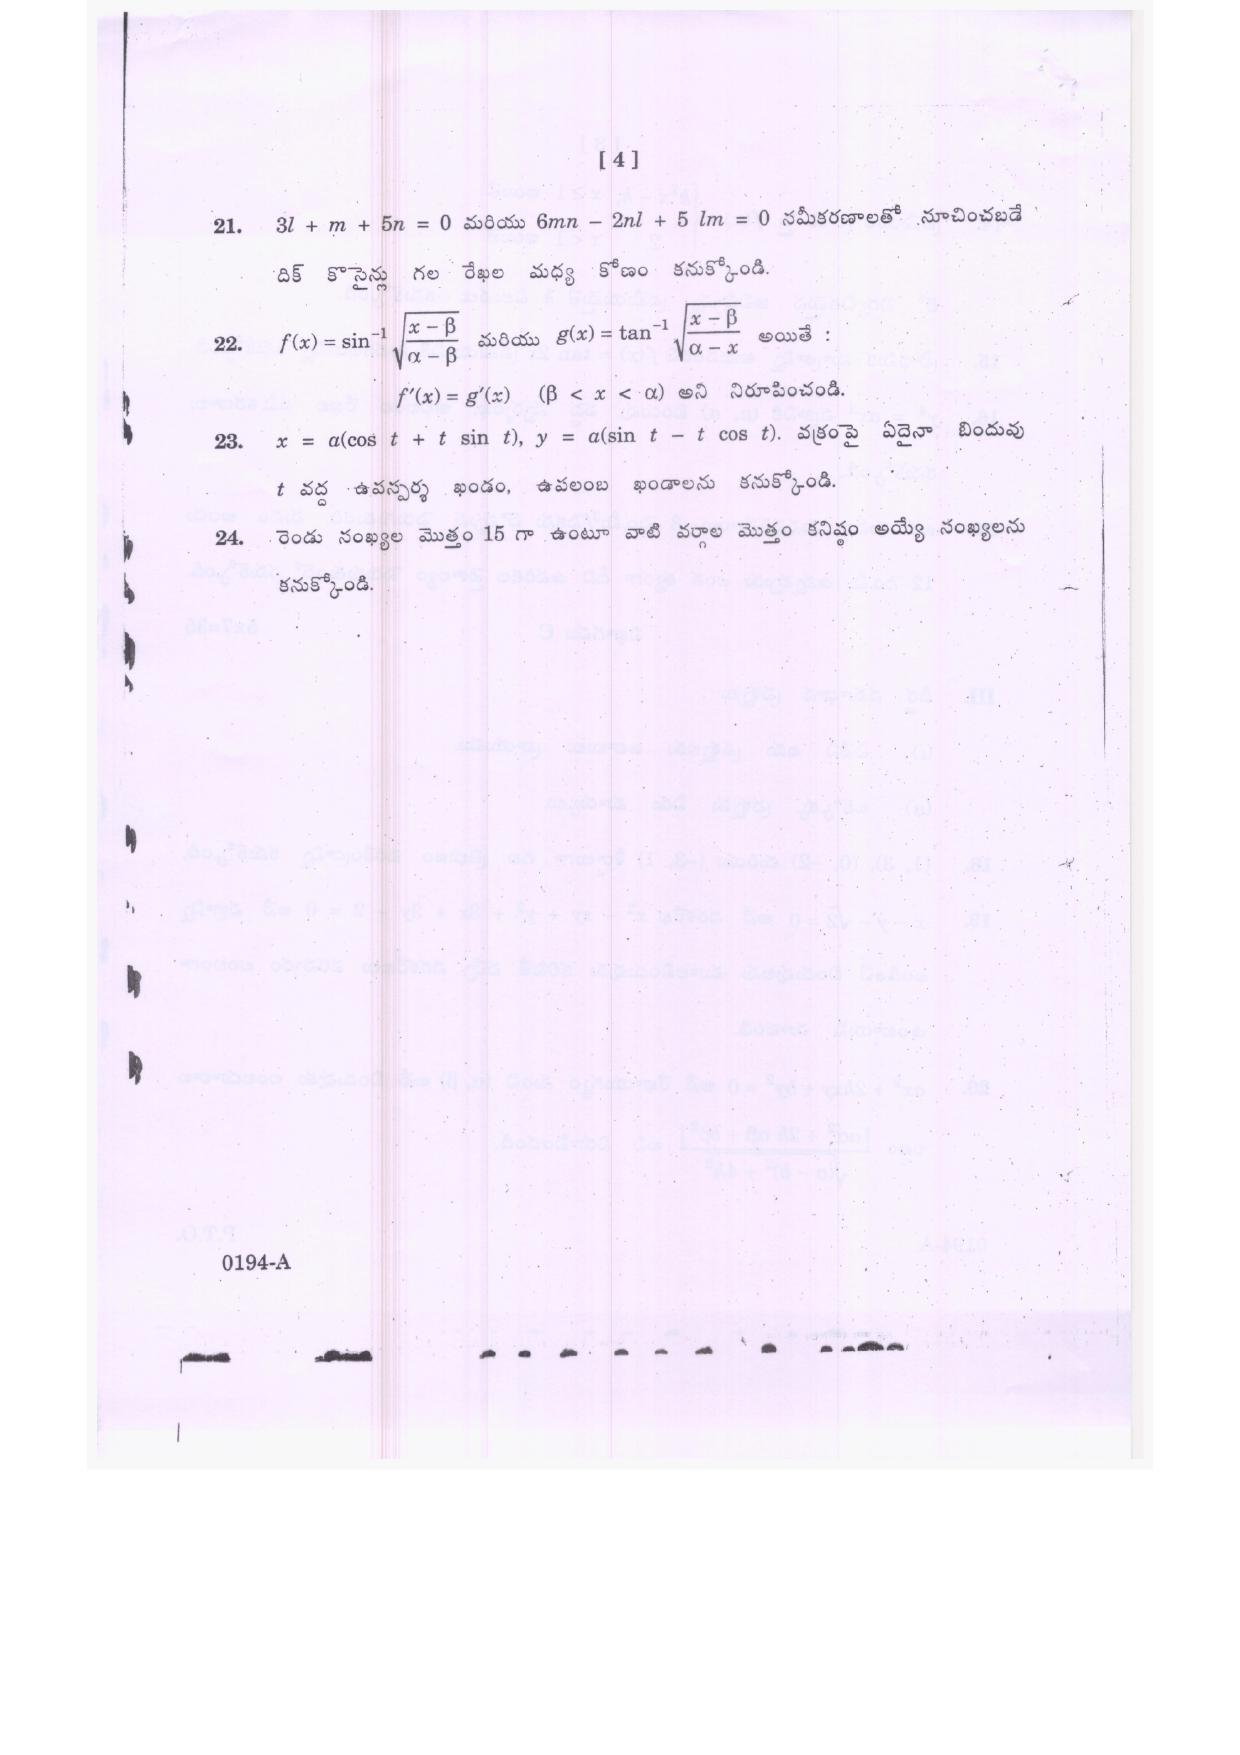 [ 4 ]
21. 3l + m + 5n = 0 మరియు 6mn − 2nl + 5 lm = 0 సమీకరణాలతో సూచించబడే
దిక్ కొసైన్లు గల రేఖల మధ్య కోణం కనుక్కోండి.
22. f(x) = sin⁻¹ √((x − β)/(α − β)) మరియు g(x) = tan⁻¹ √((x − β)/(α − x)) అయితే :
f′(x) = g′(x) (β < x < α) అని నిరూపించండి.
23. x = a(cos t + t sin t), y = a(sin t − t cos t). వక్రంపై ఏదైనా బిందువు
t వద్ద ఉపస్పర్శ ఖండం, ఉపలంబ ఖండాలను కనుక్కోండి.
24. రెండు సంఖ్యల మొత్తం 15 గా ఉంటూ వాటి వర్గాల మొత్తం కనిష్ఠం అయ్యే సంఖ్యలను
కనుక్కోండి.
0194-A